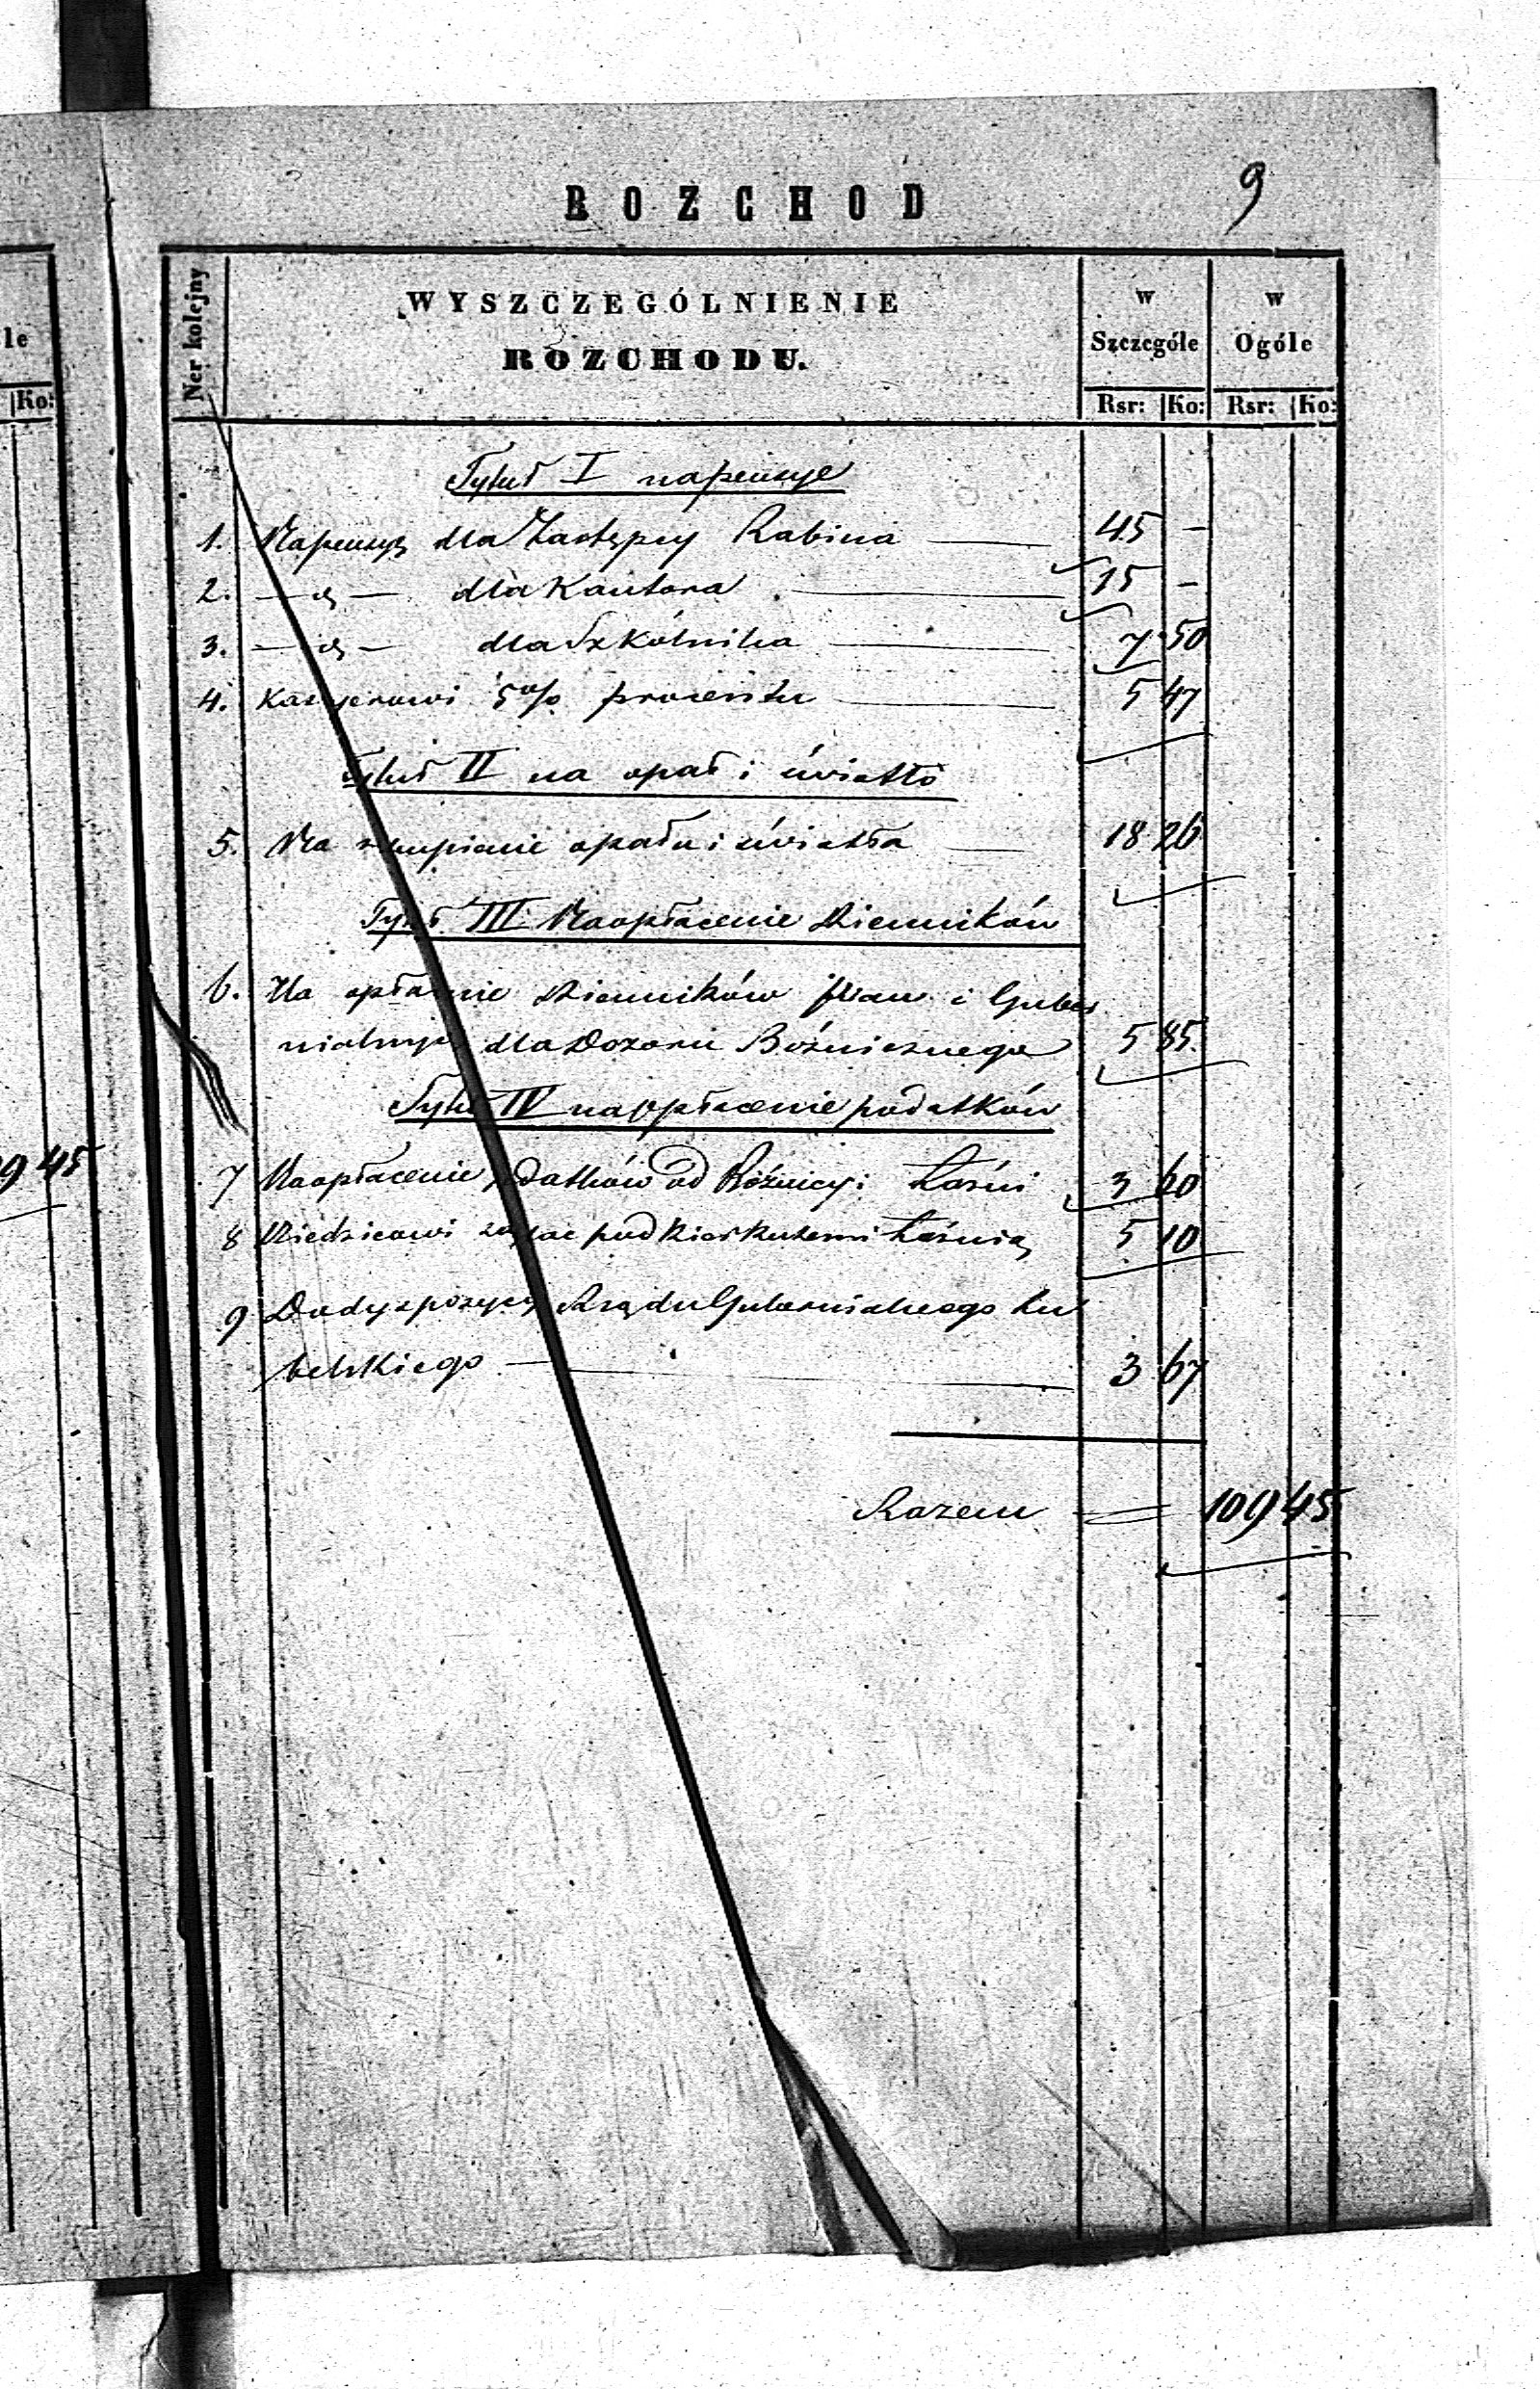 ROZCHOD
9
le
Ko:
Ner kolejny
WYSZCZEGÓLNIENIE
ROZCHODU.
w
Szczególe
w
Ogóle
Rsr: Ko: Rsr: Ko:
Tytuł I na pensye
1. Na pensyą dla Zastępcy Rabina 45 -
2. dla Kantora 15 -
3. dla Szkólnika 7 50
4. Kassyerowi 5% procentu 5 47
Tytuł II na opał i światło
5. Na zakupienie opału i światła 18 26
Tytuł III. Na opłacenie Dzienników
6. Na opłacenie Dzienników praw i Guber
nialnych dla Dozoru Bóżnicznego 5 85.
Tytuł IV na opłacenie podatków
9 45
7 Na opłacenie podatków od Bóżnicy i Łaźni 3 60
8 Dziedzicowi za plac pod Kierkutem i Łaźnią 5 10
9 Do dyspozycyi Rządu Gubernialnego Lu
belskiego 3 67
Razem 109 45